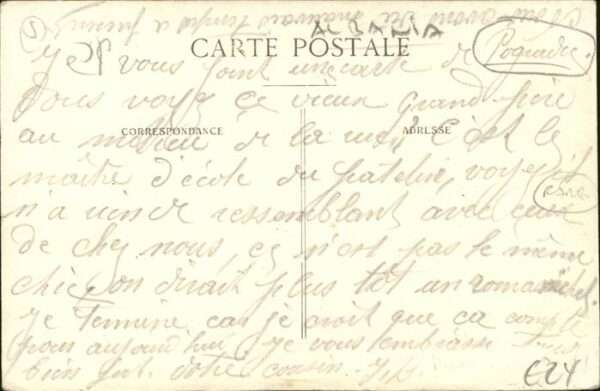 nous avons du mauvais temps
ALBANIA
5
CARTE POSTALE
Je vous joint une carte de Pogradec.
Vous voyez ce vieux grand-père
CORRESPONDANCE
ADRESSE
au milieu de la rue, c'est le
maître d'école du patelin, voyez il
n'a rien de ressemblant avec ceux
RARE
de chez nous, ce n'est pas le même
chic on dirait plus tôt un romanichel.
Je termine car je crois que ça compte
pour aujourd'hui. Je vous embrasse tous
bien fort. votre cousin.
€24